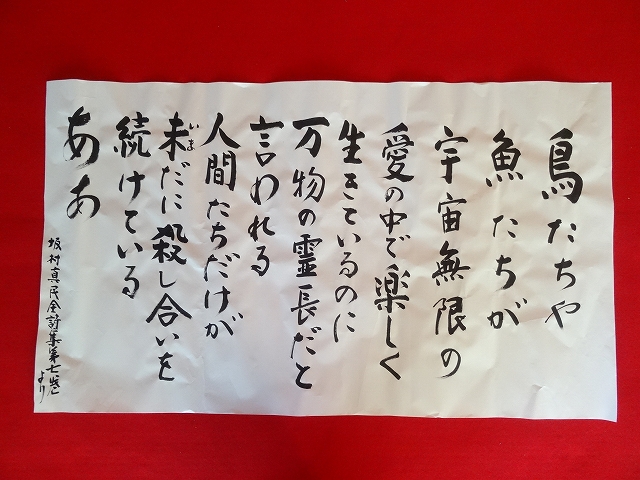 鳥たちや
魚たちが
宇宙無限の
愛の中で楽しく
生きているのに
万物の霊長だと
言われる
人間たちだけが
未だに殺し合いを
いま
続けている
ああ
坂村真民全詩集第七巻
より